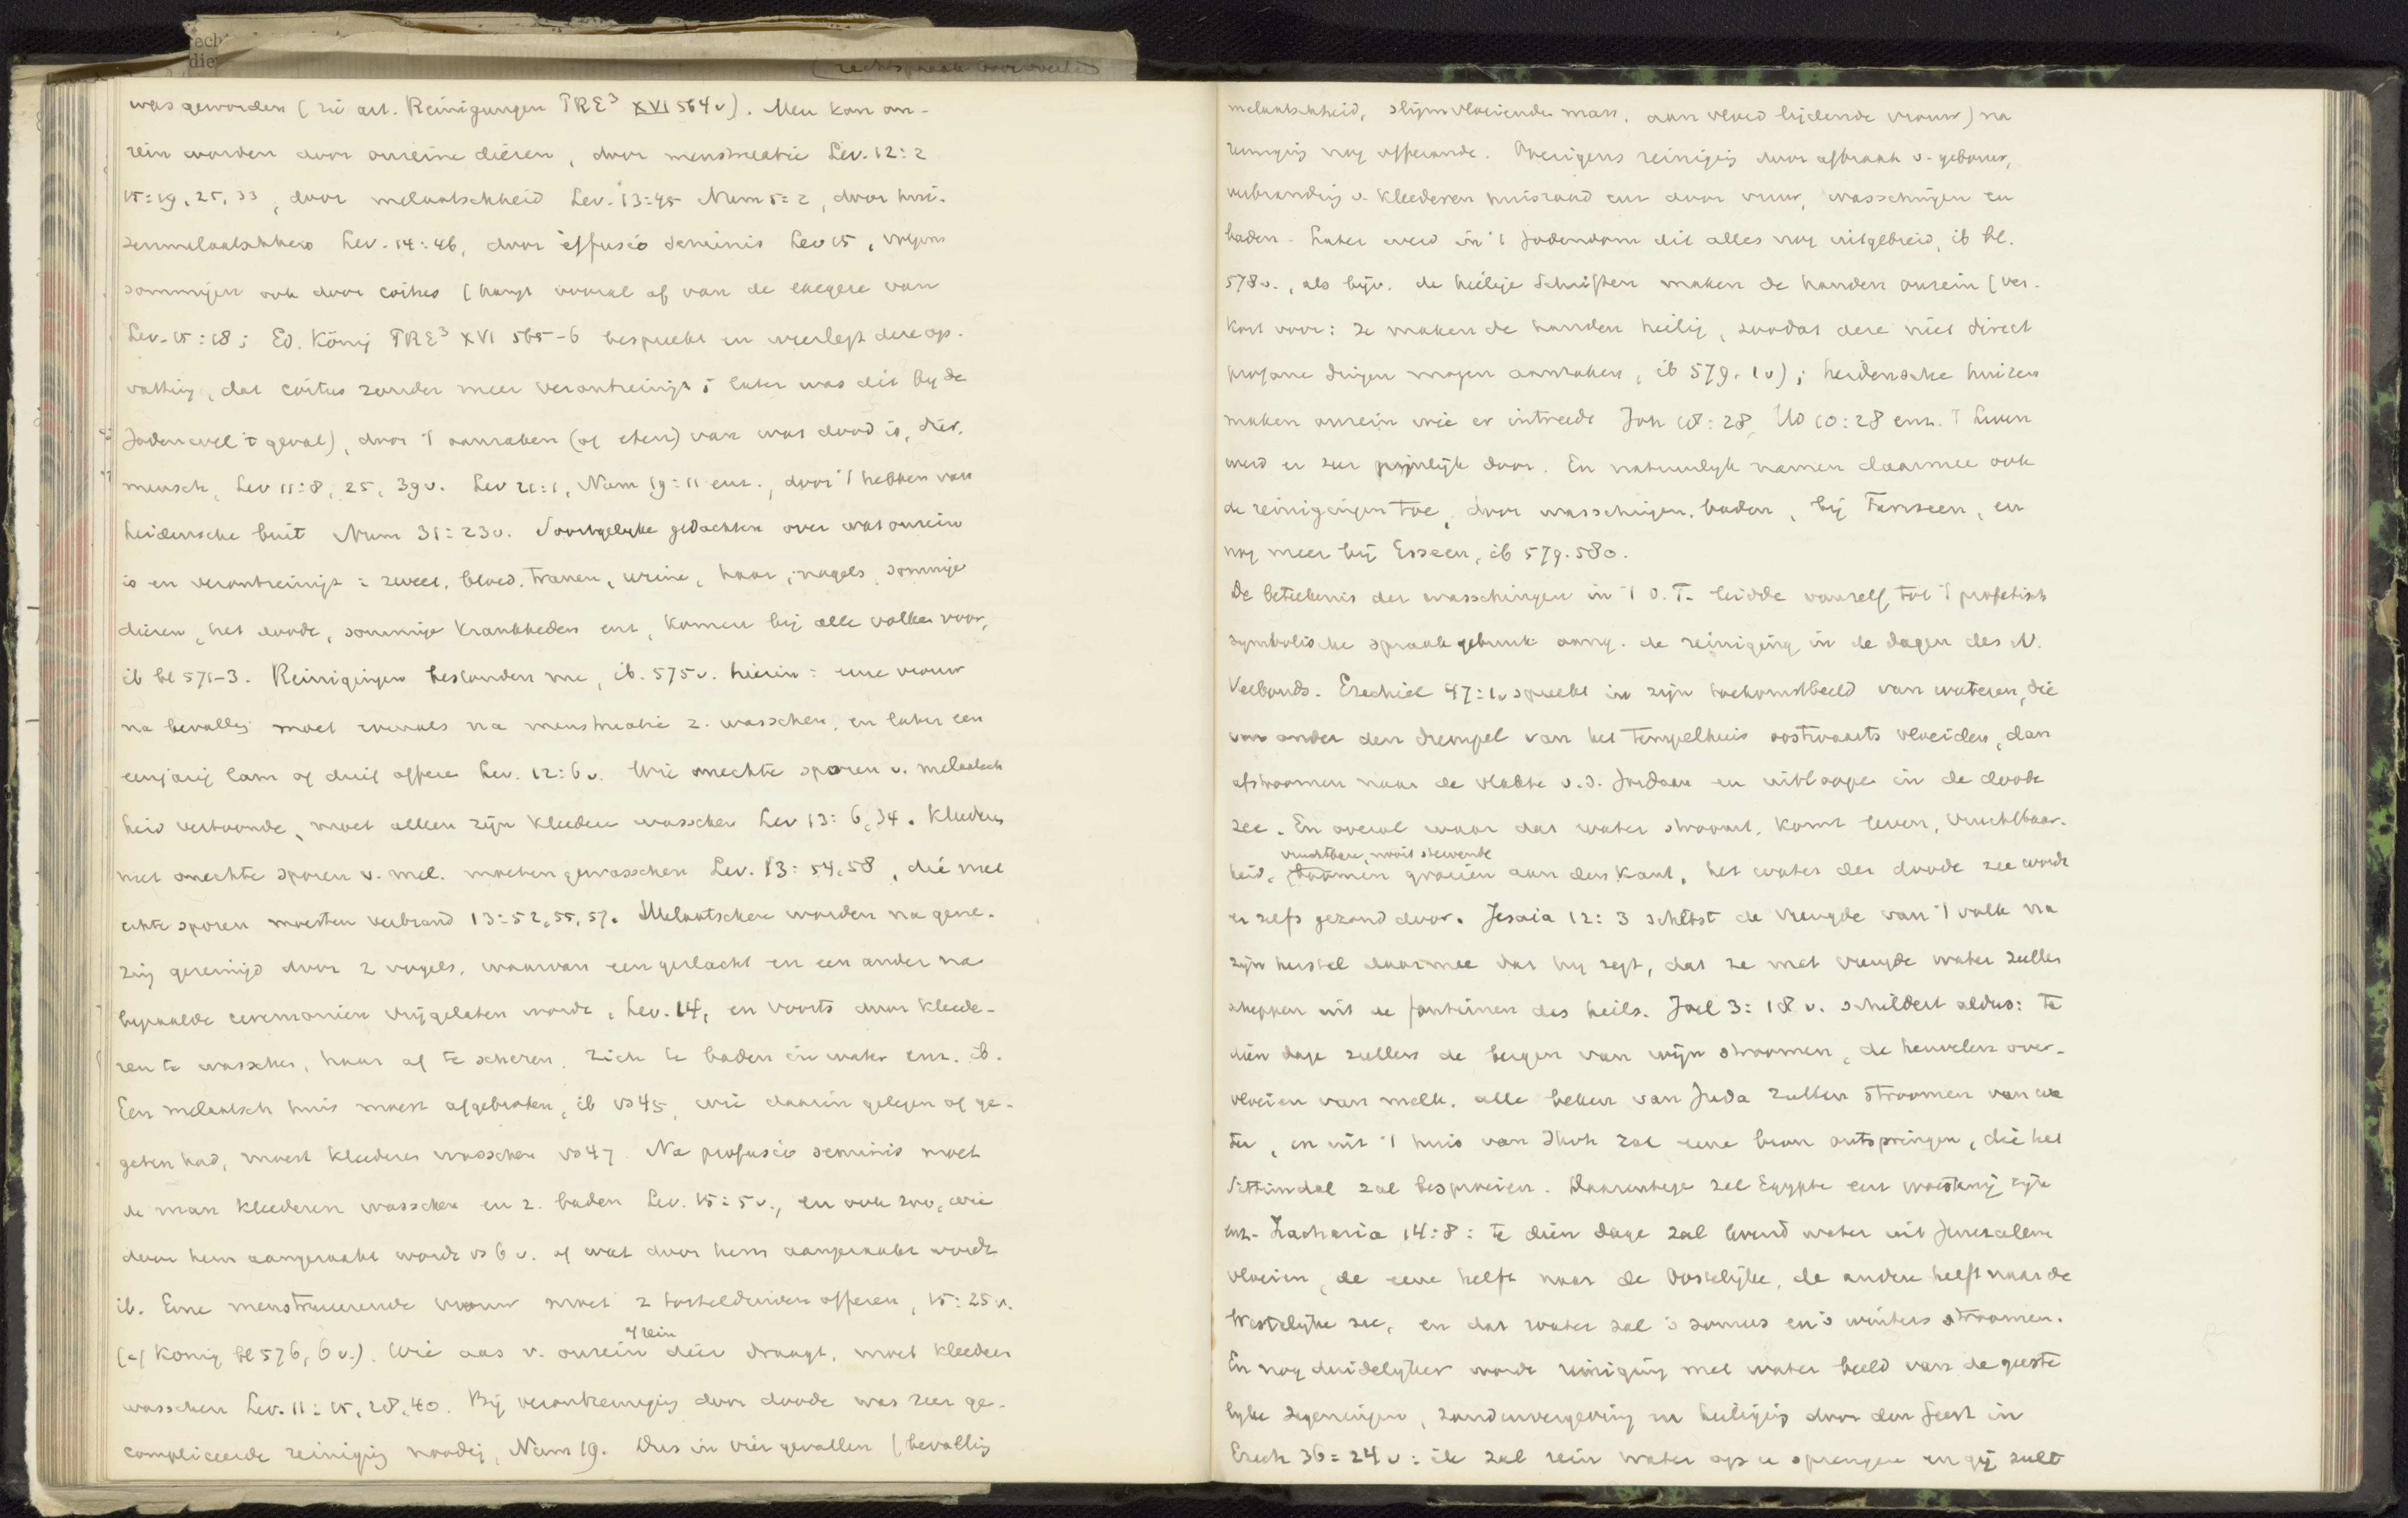 was geworden (zie art. Reinigungen PRE³ XVI 564v). Men kan on-
rein worden door onreine dieren, door menstruatie Lev. 12:2
15:19, 25, 33, door melaatschheid Lev. 13:45 Num 5:2, door hui-
zenmelaatschheid Lev. 14:46, door effusio seminis Lev 15, volgens
sommigen ook door coitus (hangt vooral af van de exegese van
Lev. 15:18; Ed. König PRE³ XVI 565-6 bespreekt en weerlegt deze op-
vatting, dat coitus zonder meer verontreinigt; later was dit by de
Joden wel 't geval), door 't aanraken (of eten) van wat dood is, dier,
mensch, Lev 11:8, 25, 39v. Lev 21:1, Num 19:11 enz., door 't hebben van
heidensche buit Num 31:23v. Soortgelyke gedachten over wat onrein
is en verontreinigt: zweet, bloed, tranen, urine, haar, nagels, sommige
dieren, het doode, sommige krankheden enz, komen bij alle volken voor,
ib bl 571-3. Reinigingen bestonden nu, ib. 575v. hierin: eene vrouw
na bevalling moet evenals na menstruatie z. wasschen, en later een
eenjarig lam of duif offeren Lev. 12:6v. Wie onechte sporen v. melaatsch
heid vertoonde, moet alleen zijn kleederen wasschen Lev 13:6, 34. Kleederen
met onechte sporen v. mel. moeten gewasschen Lev. 13:54, 58, die met
echte sporen moesten verbrand 13:52, 55, 57. Melaatschen worden na gene-
zing gereinigd door 2 vogels, waarvan een geslacht en een ander na
bepaalde ceremoniën vrijgelaten wordt, Lev. 14, en voorts door kleede-
ren te wasschen, haar af te scheren, zich te baden in water enz. ib.
Een melaatsch huis moest afgebroken, ib vs 45, wie daarin gelegen of ge-
geten had, moest kleederen wasschen vs 47. Na profusio seminis moet
de man kleederen wasschen en z. baden Lev. 15:5v., en ook zoo, wie
door hem aangeraakt wordt vs 6v. of wat door hem aangeraakt wordt
ib. Eene menstrueerende vrouw moet 2 tortelduiven offeren, 15:25v.
of rein
(cf König bl 576, 6v.). Wie aas v. onrein dier draagt, moet kleederen
wasschen Lev. 11:15, 28, 40. Bij verontreiniging door doode was zeer ge-
compliceerde reiniging noodig, Num 19. Dus in vier gevallen (bevalling
melaatschheid, slijmvloeiende man, aan vloed lijdende vrouw) na
reiniging nog offerande. Overigens reiniging door afbraak v. gebouw,
verbranding v. kleederen huisraad enz door vuur, wasschingen en
baden. Later werd in 't Jodendom dit alles nog uitgebreid, ib bl.
578v., als bijv. de heilige Schriften maken de handen onrein (ver-
kort voor: ze maken de handen heilig, zoodat deze niet direct
profane dingen mogen aanraken, ib 579, 1v); heidensche huizen
maken onrein wie er intreedt Joh 18:28, Hd 10:28 enz. 't Leven
werd er zeer pijnlijk door. En natuurlyk namen daarmee ook
de reinigingen toe, door wasschingen, baden, bij Farizeen, en
nog meer bij Esseen, ib 579. 580.
De beteekenis der wasschingen in 't O.T. leidde vanzelf tot 't profetisch
symbolische spraakgebruik aang. de reiniging in de dagen des N.
Verbonds. Ezechiel 47:1v spreekt in zijn toekomstbeeld van wateren, die
van onder den drempel van het Tempelhuis oostwaarts vloeiden, dan
afstroomen naar de vlakte v.d. Jordaan en uitloopen in de doode
zee. En overal waar dat water stroomt, komt leven, vruchtbaar-
vruchtbare, nooit stervende
heid, boomen groeien aan den kant, het water der doode zee wordt
er zelfs gezond door. Jesaia 12:3 schetst de vreugde van 't volk na
zijn herstel daarmee dat hy zegt, dat ze met vreugde water zullen
scheppen uit de fonteinen des heils. Joel 3:18v. schildert aldus: te
dien dage zullen de bergen van wijn stroomen, de heuvelen over-
vloeien van melk, alle beken van Juda zullen stroomen van wa
ter, en uit 't huis van Jhvh zal eene bron ontspringen, die het
Sittimdal zal besproeien. Daarentegen zal Egypte een woestenij zijn
enz. Zacharia 14:8: te dien dage zal levend water uit Jeruzalem
vloeien, de eene helft naar de Oostelijke, de andere helft naar de
Westelijke zee, en dat water zal 's zomers en 's winters stroomen.
En nog duidelyker wordt reiniging met water beeld van de geeste
lyke zegeningen, zondenvergeving en heiliging door den Geest in
Ezech 36:24v: ik zal rein water op u sprengen en gij zult